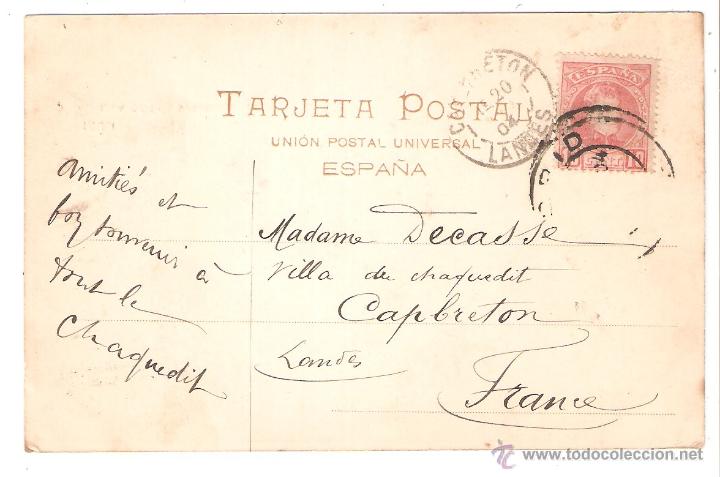 TARJETA POSTAL
UNIÓN POSTAL UNIVERSAL
ESPAÑA
CAPBRETON
20
04
LANDES
ESPAÑA
amitiés et
bon souvenir à
tout le
Chaquedit
Madame Decasse
Villa du chaquedit
Capbreton
Landes
France
www.todocoleccion.net